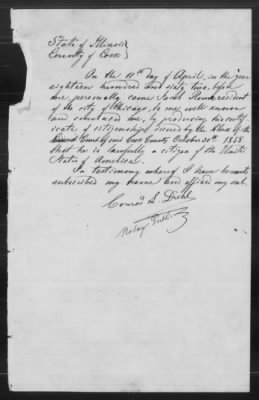 State of Illinois }
County of Cook }
On the 11th day of April, in the year
eighteen hundred and sixty two, before
me personally came Jacob resident
of the city of Chicago, to me well known
and convinced me, by producing his certif
icate of citizenship issued by the Clerk of the
Court of said Cook County October 30th 1858
that he is lawfully a citizen of the United
States of America.
In testimony whereof I have hereunto
subscribed my name and affixed my seal.
Conrad L. Diehl
Notary Public